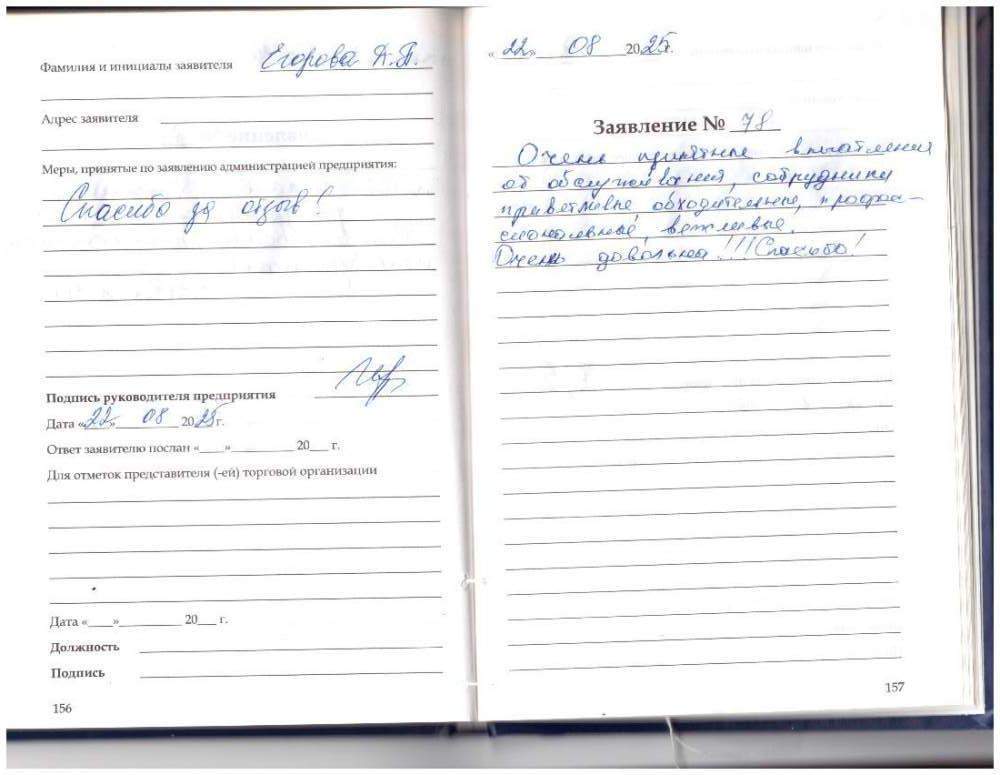 Фамилия и инициалы заявителя Егорова К.П.
Адрес заявителя
Меры, принятые по заявлению администрацией предприятия:
Спасибо за отзыв!
Подпись руководителя предприятия
Дата «22» 08 2025г.
Ответ заявителю послан «____»__________ 20___ г.
Для отметок представителя (-ей) торговой организации
Дата «____»__________ 20___ г.
Должность
Подпись
156
«22» 08 2025г.
Заявление № 78
Очень приятные впечатления
от обслуживания, сотрудники
приветливые, обходительные, профес-
сиональные, вежливые.
Очень довольны!!! Спасибо!
157